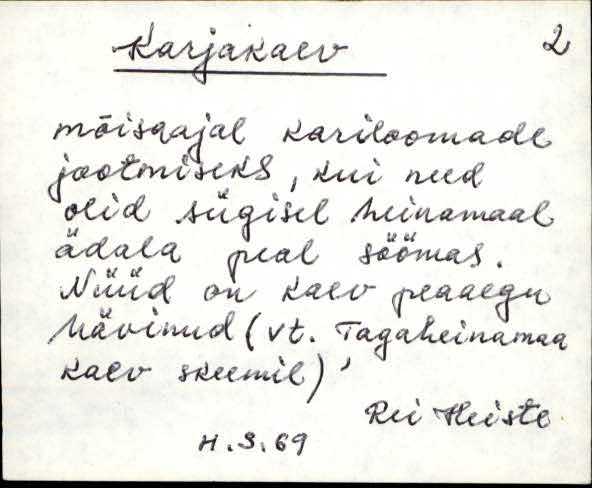 Karjakaev 2
mõisaajal kariloomade
jootmiseks, kui need
olid sügisel heinamaal
ädala peal söömas.
Nüüd on kaev peaaegu
hävinud (vt. Tagaheinamaa
kaev skeemil)
Rei Heiste
H.S.69